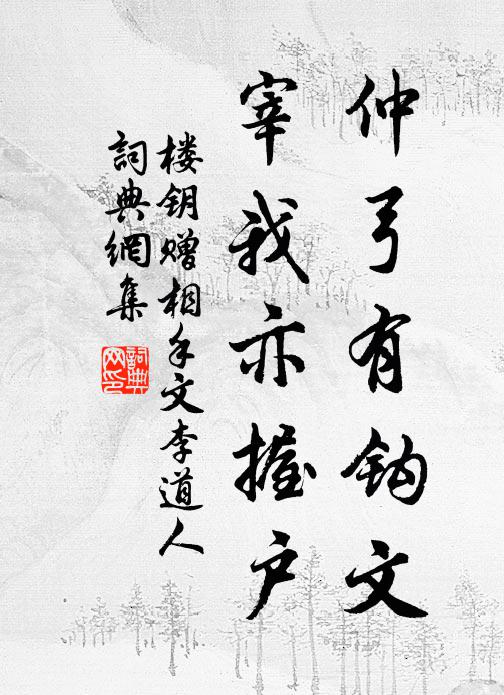 仲弓有钩文
宰我亦握户
楼钥赠相手文李道人
詞典網集
詞典網印